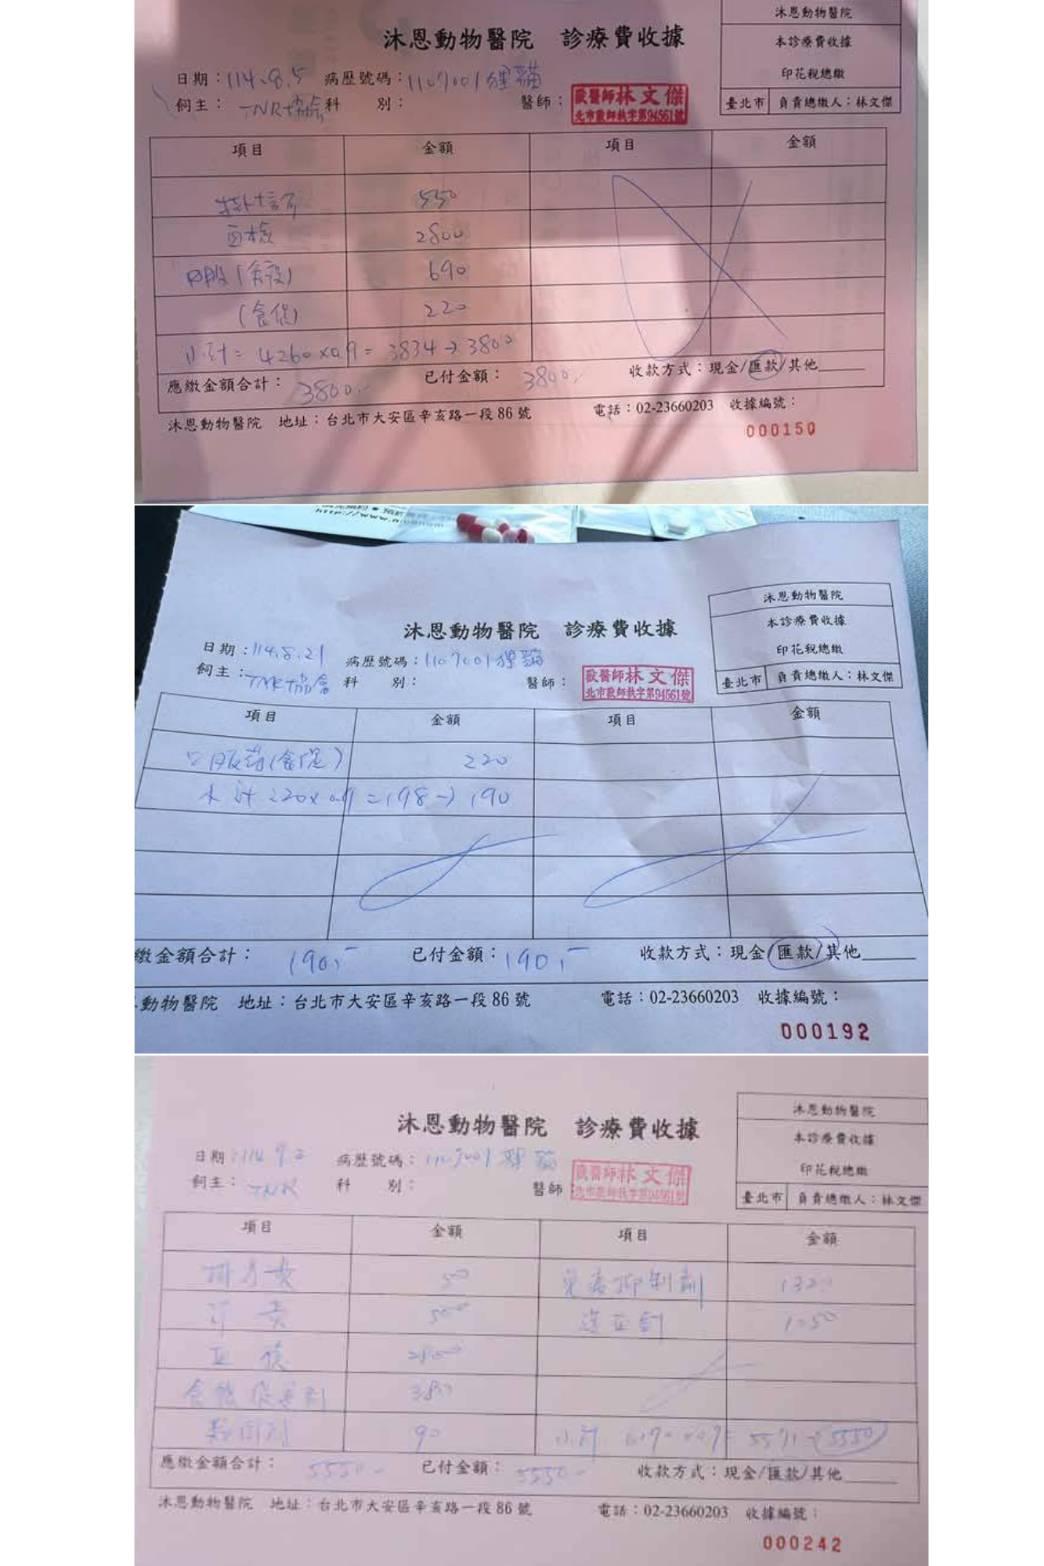 沐恩動物醫院 診療費收據
沐恩動物醫院
本診療費收據
印花稅總繳
臺北市 負責總繳人：林文傑
日期：114.8.5 病歷號碼：1107001 狸貓
飼主：TNR協會 科 別： 醫師：
獸醫師林文傑
北市獸師執字第94561號
項目 金額 項目 金額
550
血檢 2800
口服(免疫) 690
(食促) 220
小計 = 4260×0.9 = 3834→3800
應繳金額合計：3800.- 已付金額：3800.- 收款方式：現金/匯款/其他
沐恩動物醫院 地址：台北市大安區辛亥路一段86號 電話：02-23660203 收據編號：
000150
http://www.
沐恩動物醫院 診療費收據
沐恩動物醫院
本診療費收據
印花稅總繳
臺北市 負責總繳人：林文傑
日期：114.8.21 病歷號碼：1107001 狸貓
飼主：TNR協會 科 別： 醫師：
獸醫師林文傑
北市獸師執字第94561號
項目 金額 項目 金額
口服藥(食促) 220
小計 220×0.9=198→190
繳金額合計：190.- 已付金額：190.- 收款方式：現金/匯款/其他
動物醫院 地址：台北市大安區辛亥路一段86號 電話：02-23660203 收據編號：
000192
沐恩動物醫院 診療費收據
沐恩動物醫院
本診療費收據
印花稅總繳
臺北市 負責總繳人：林文傑
日期：114.9.2 病歷號碼：1107001 狸貓
飼主：TNR 科 別： 醫師
獸醫師林文傑
北市獸師執字第94561號
項目 金額 項目 金額
掛號費 50 免疫抑制劑 1320
診費 500 造血劑 1050
血檢 2800
食慾促進劑 380
90 小計 6190×0.9= 5571→5550
應繳金額合計：5550.- 已付金額：5550.- 收款方式：現金/匯款/其他
沐恩動物醫院 地址：台北市大安區辛亥路一段86號 電話：02-23660203 收據編號：
000242